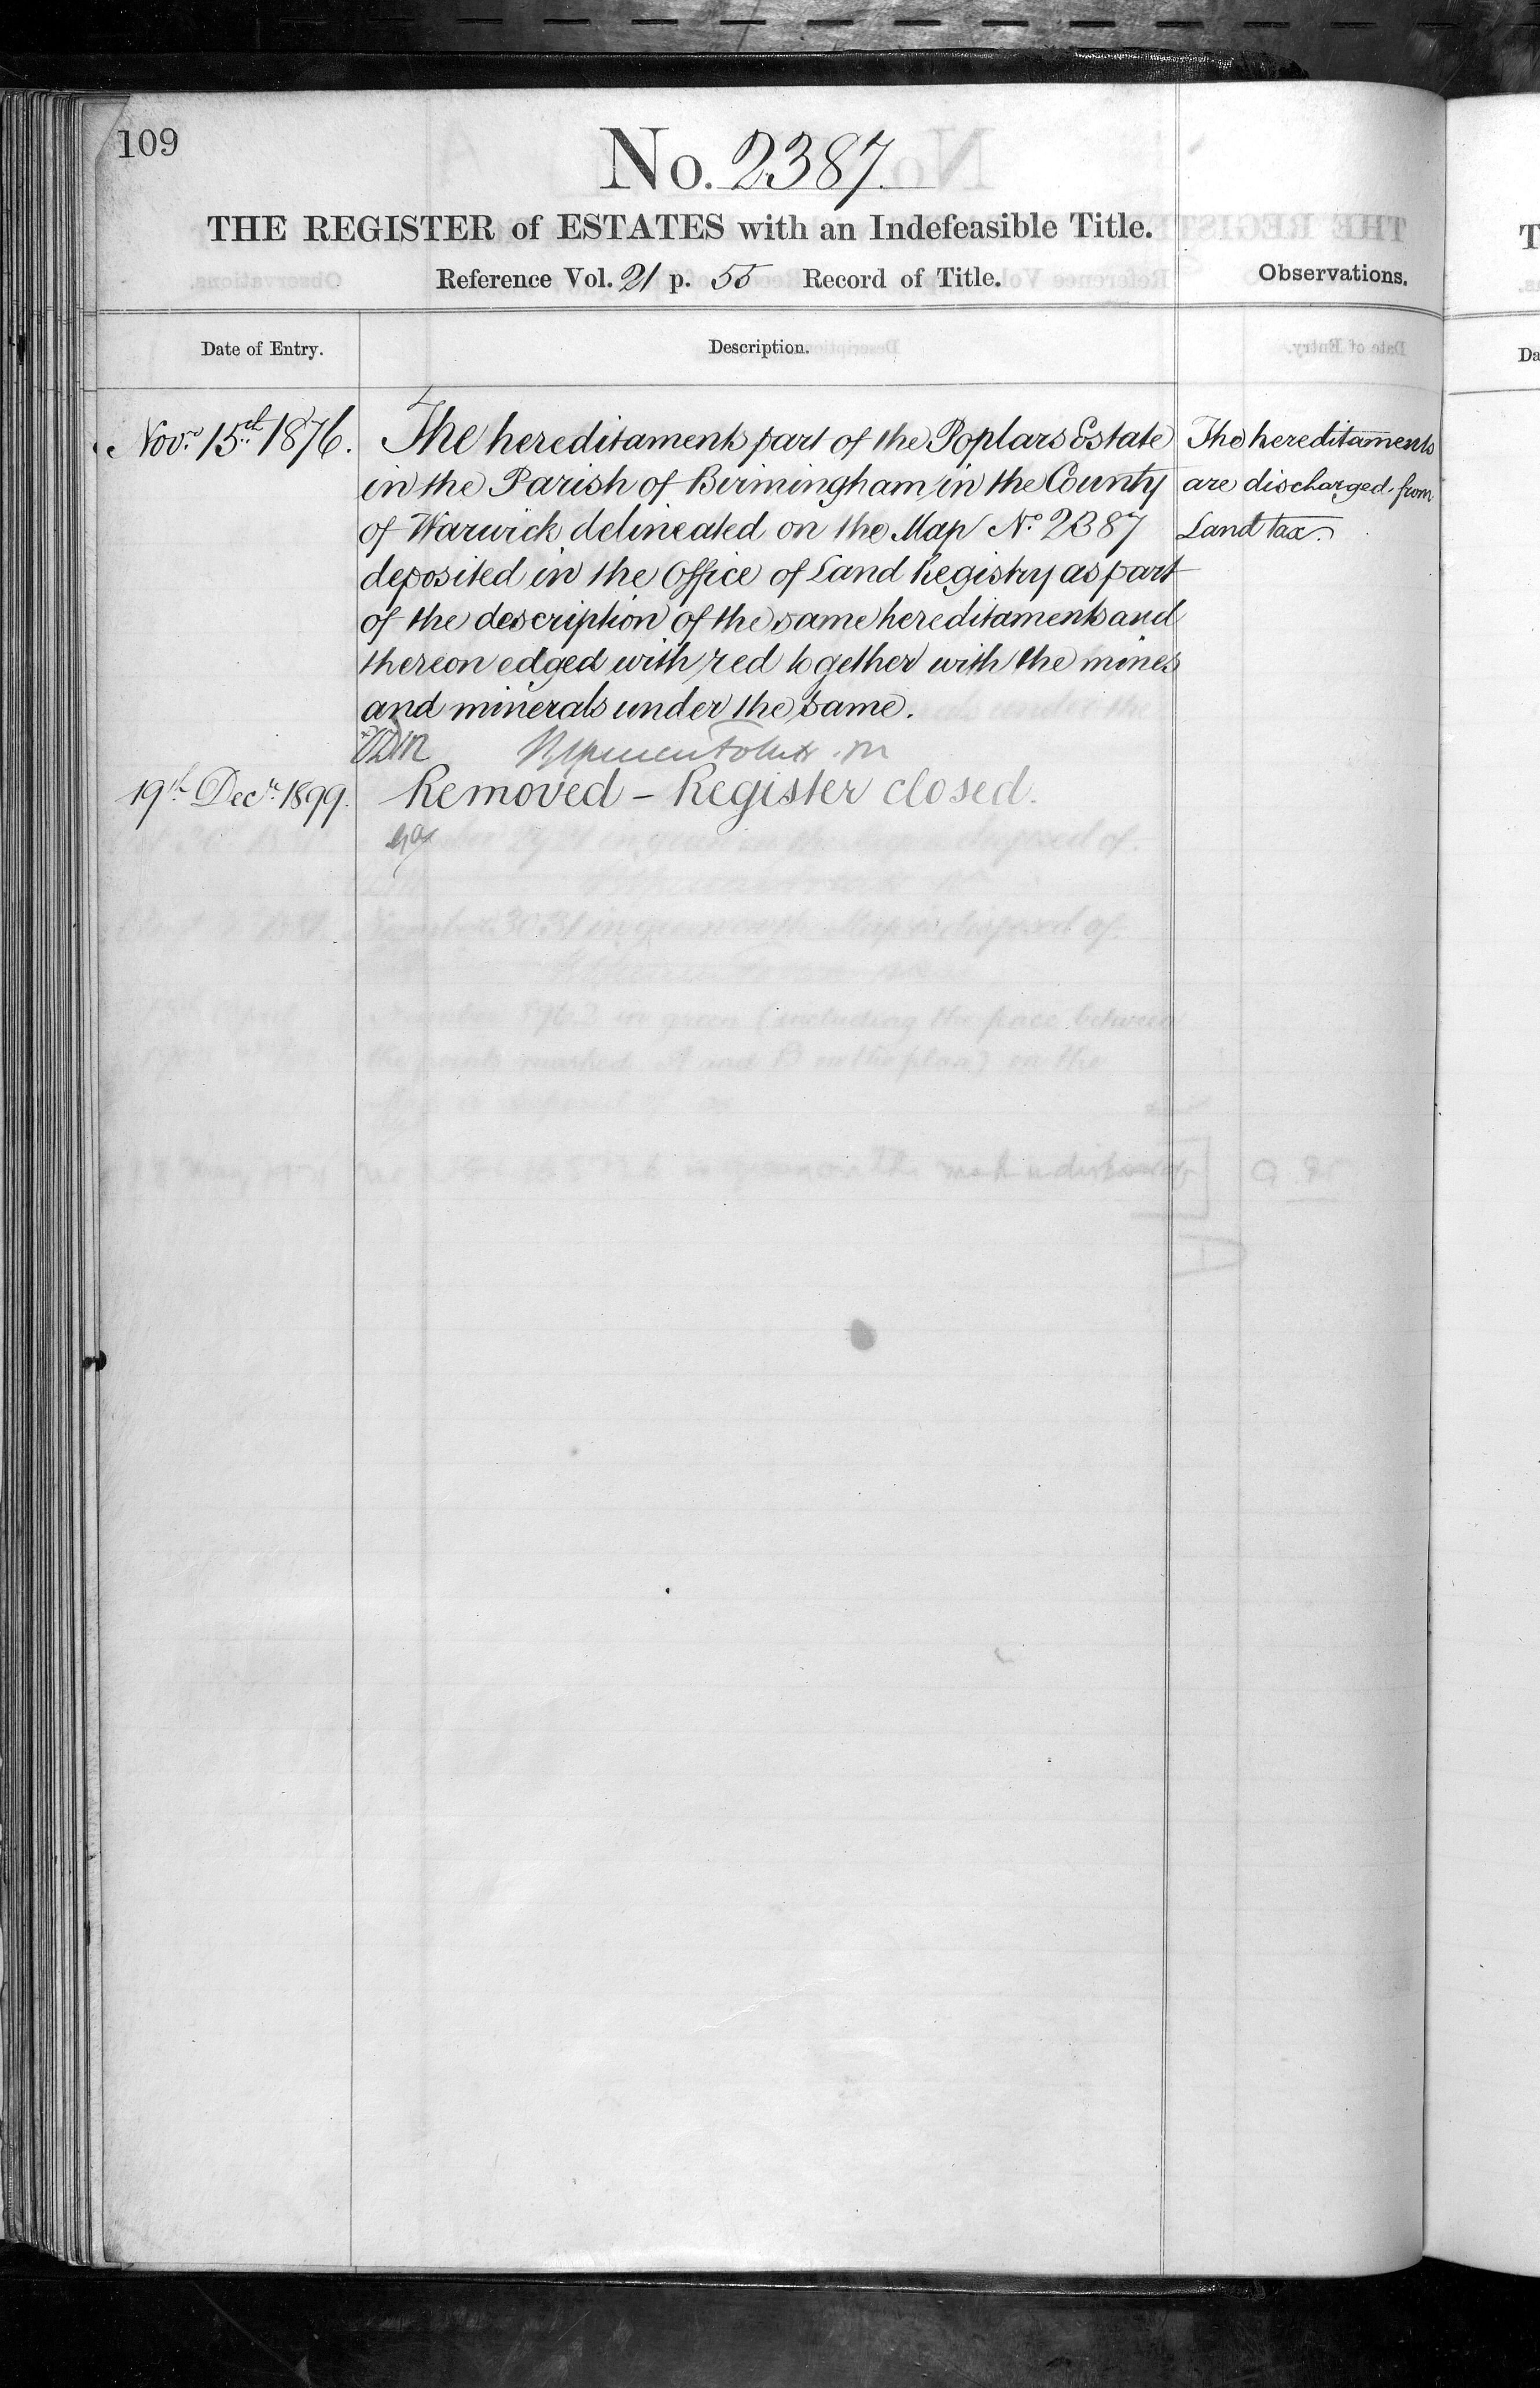 109
No. 2387.
THE REGISTER of ESTATES with an Indefeasible Title.
Reference Vol. 21 p. 55 Record of Title.
Observations.
Date of Entry.
Description.
Nov.r 15th 1876.
The hereditaments part of the Poplars Estate
in the Parish of Birmingham in the County
of Warwick delineated on the Map No. 2387
deposited in the Office of Land Registry as part
of the description of the same hereditaments and
thereon edged with red together with the mines
and minerals under the same.
The hereditaments
are discharged from
Land tax.
19th Decr. 1899.
Removed - Register closed.